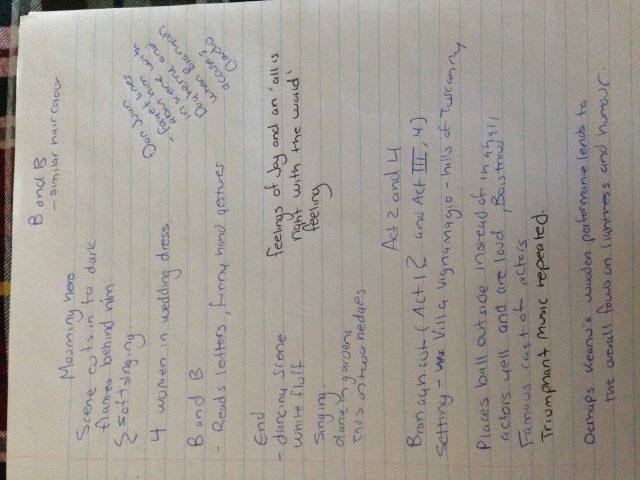 B and B
- similar hair colour
Mourning hero
Scene cuts in to dark
flames behind him
& soft singing
4 women in wedding dress.
Don Jon
target lines
about him
in scene one
when Branagh
accuses
Cladio
B and B
- Reads letters, funny hand gestures
End
- dancing scene
white fluff
Singing
dance in gardens
Ends on two hedges
feelings of Joy and an 'all is
right with the world'
feeling
Act 2 and 4
Branagh cut (Act 1, 2 and Act III, 4)
Setting - Villa Vignamaggio - hills of Tuscanny
Places ball outside instead of in a hall
actors yell and are loud, Boistrous
Famous cast of actors
Triumphant music repeated.
Perhaps Keanu's wooden performance lends to
the overall focus on lightness and humour.